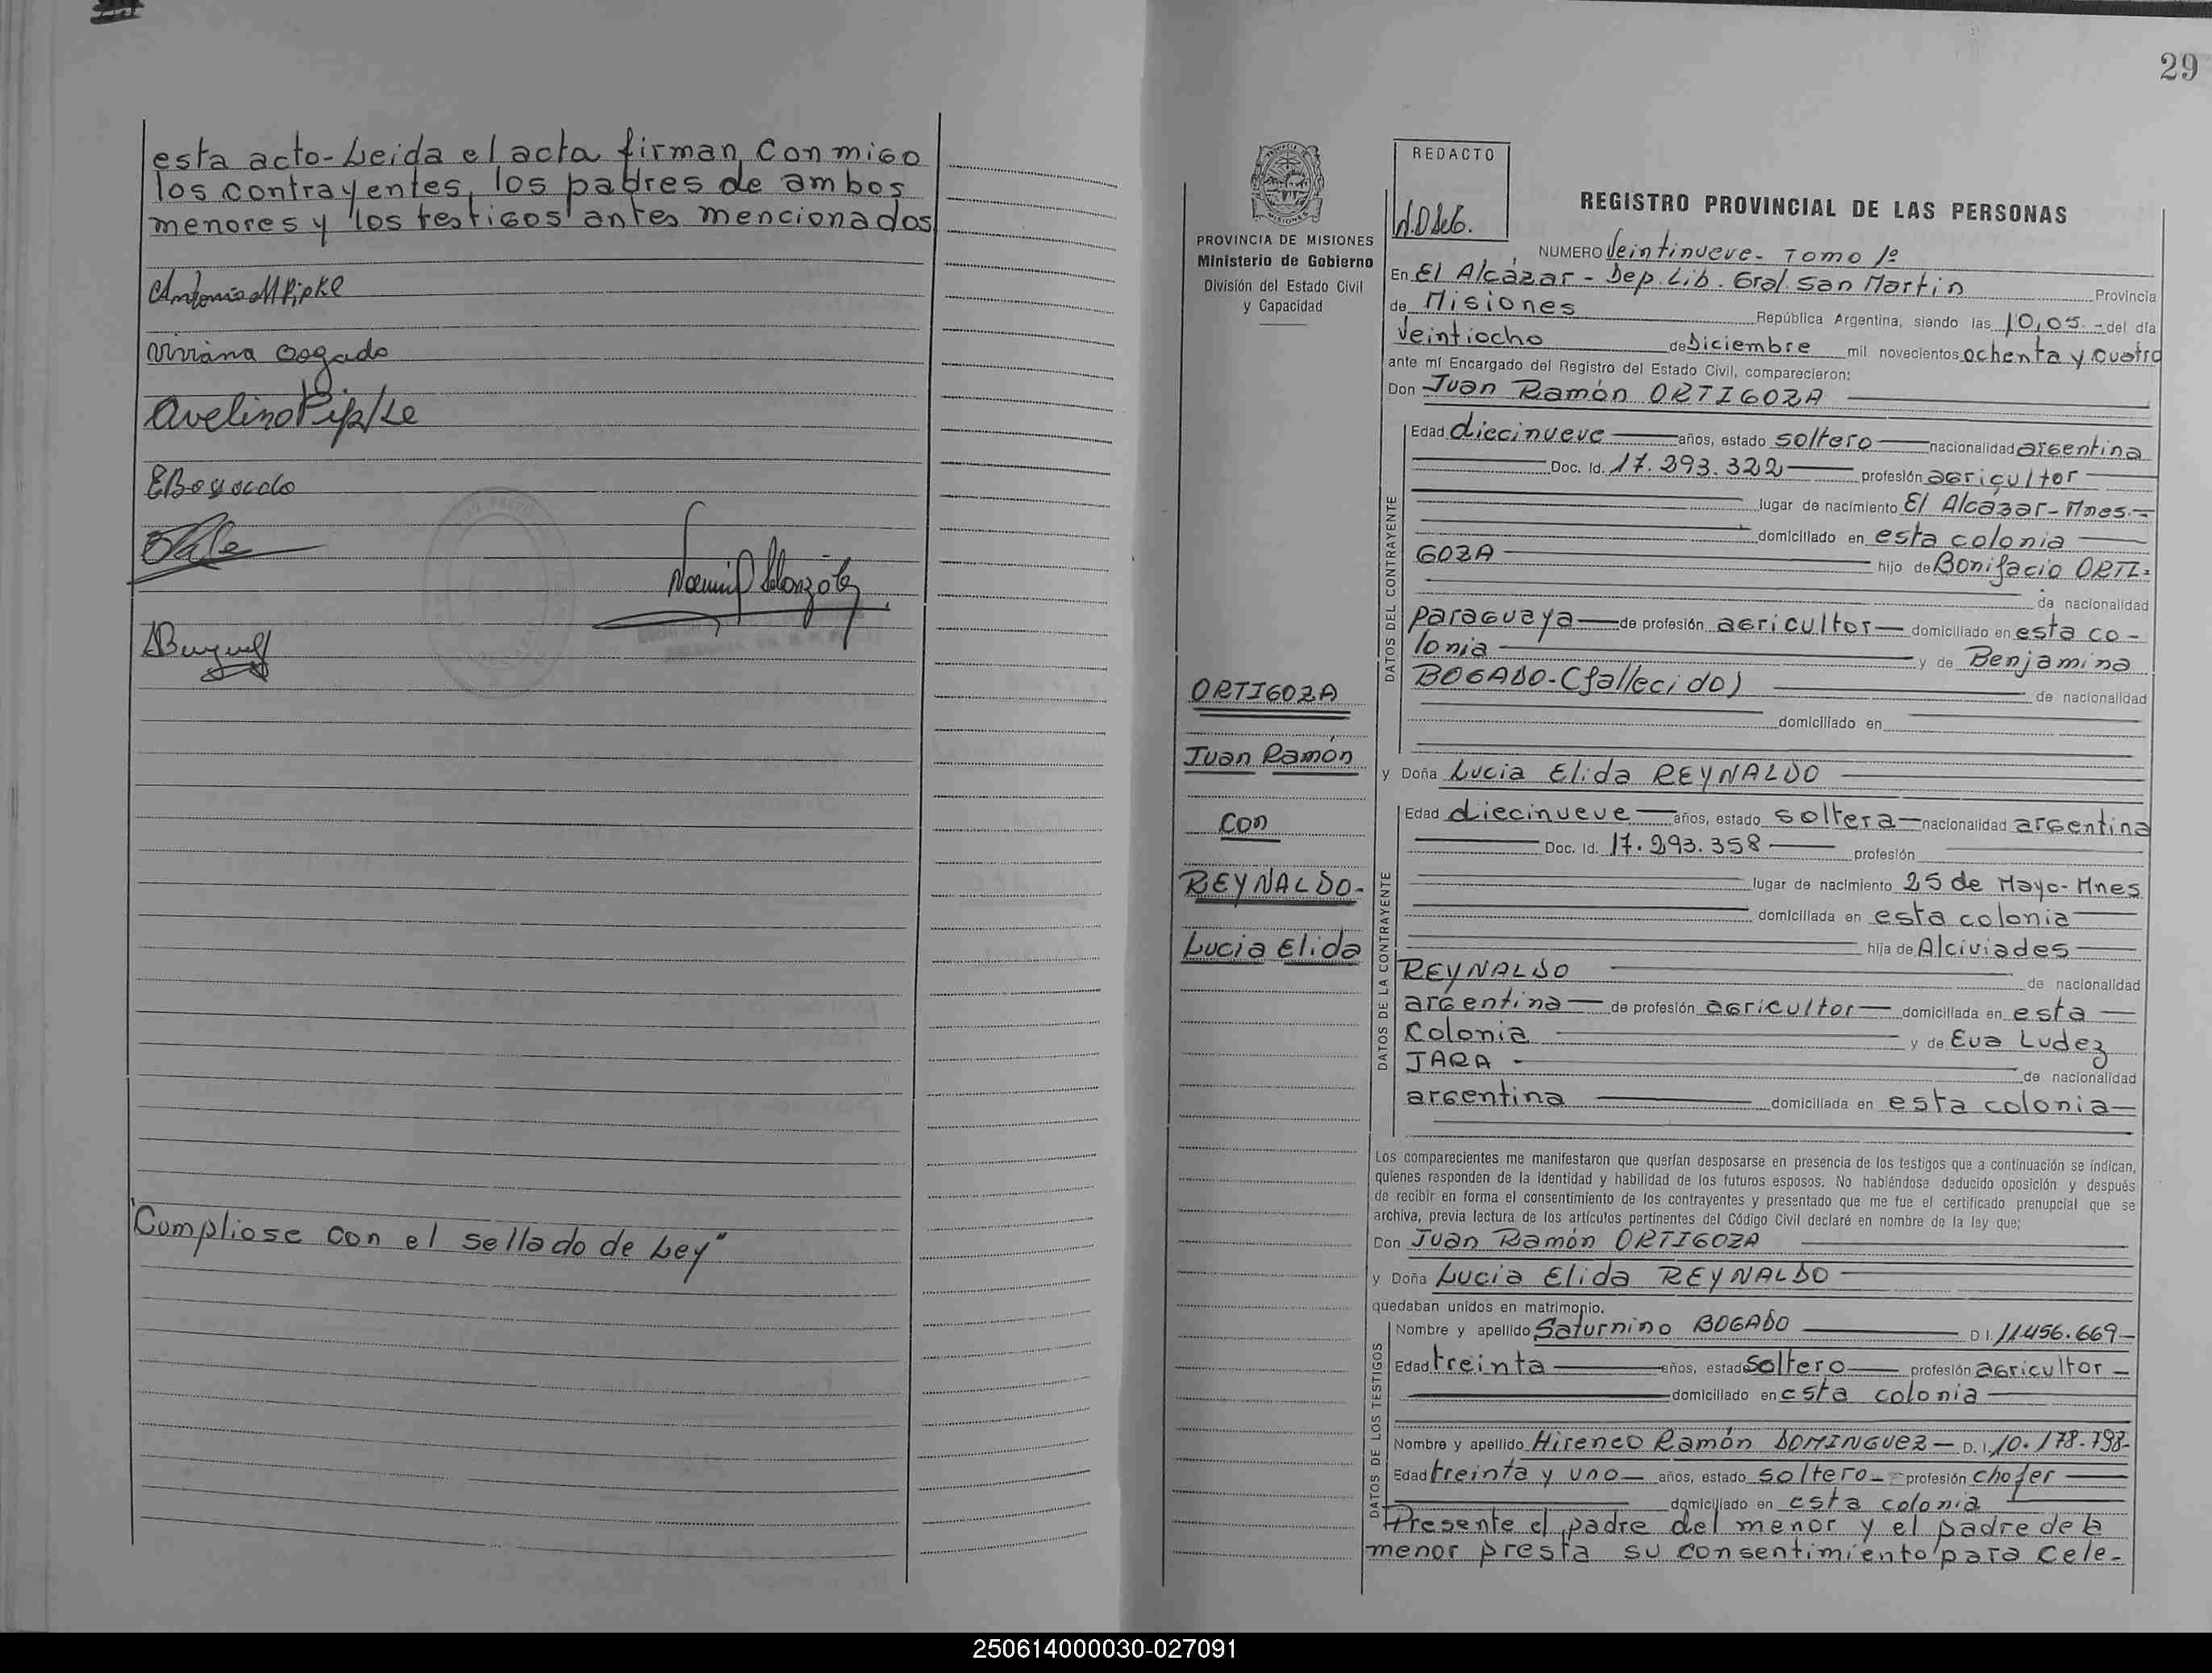 esta acto-Leida el acta firman conmigo
los contrayentes, los padres de ambos
menores y los testigos antes mencionados
Antonio M Pipke
Viviana Bogado
Avelino Pipke
EBogado
"Cumpliose con el sellado de Ley"
29
PROVINCIA DE MISIONES
Ministerio de Gobierno
División del Estado Civil
y Capacidad
ORTIGOZA
Juan Ramón
con
REYNALDO-
Lucia Elida
REDACTO
REGISTRO PROVINCIAL DE LAS PERSONAS
NUMERO Veintinueve- Tomo 1º
En El Alcázar - Dep. Lib. Gral. San Martin Provincia
de Misiones República Argentina, siendo las 10,05.- del día
Veintiocho de Diciembre mil novecientos ochenta y cuatro
ante mí Encargado del Registro del Estado Civil, comparecieron:
Don Juan Ramón ORTIGOZA
DATOS DEL CONTRAYENTE
Edad diecinueve años, estado soltero nacionalidad argentina
Doc. Id. 17.293.322 profesión agricultor
lugar de nacimiento El Alcázar-Mnes.-
domiciliado en esta colonia
hijo de Bonifacio ORTI-
GOZA
de nacionalidad
paraguaya de profesión agricultor domiciliado en esta co-
lonia y de Benjamina
BOGADO-(fallecido) de nacionalidad
domiciliado en
y Doña Lucia Elida REYNALDO
DATOS DE LA CONTRAYENTE
Edad diecinueve años, estado soltera nacionalidad argentina
Doc. Id. 17.293.358 profesión
lugar de nacimiento 25 de Mayo-Mnes
domiciliada en esta colonia
hija de Alciviades
REYNALDO de nacionalidad
argentina de profesión agricultor domiciliada en esta
Colonia y de Eva Ludez
JARA de nacionalidad
argentina domiciliada en esta colonia
Los comparecientes me manifestaron que querían desposarse en presencia de los testigos que a continuación se indican,
quienes responden de la identidad y habilidad de los futuros esposos. No habiéndose deducido oposición y después
de recibir en forma el consentimiento de los contrayentes y presentado que me fue el certificado prenupcial que se
archiva, previa lectura de los artículos pertinentes del Código Civil declaré en nombre de la ley que;
Don Juan Ramón ORTIGOZA
y Doña Lucia Elida REYNALDO
quedaban unidos en matrimonio.
DATOS DE LOS TESTIGOS
Nombre y apellido Saturnino BOGADO D I. 11.456.669-
Edad treinta años, estado soltero profesión agricultor
domiciliado en esta colonia
Nombre y apellido Hireneo Ramón DOMINGUEZ D. I. 10.178.798-
Edad treinta y uno años, estado soltero- profesión chofer
domiciliado en esta colonia
Presente el padre del menor y el padre de la
menor presta su consentimiento para cele-
250614000030-027091